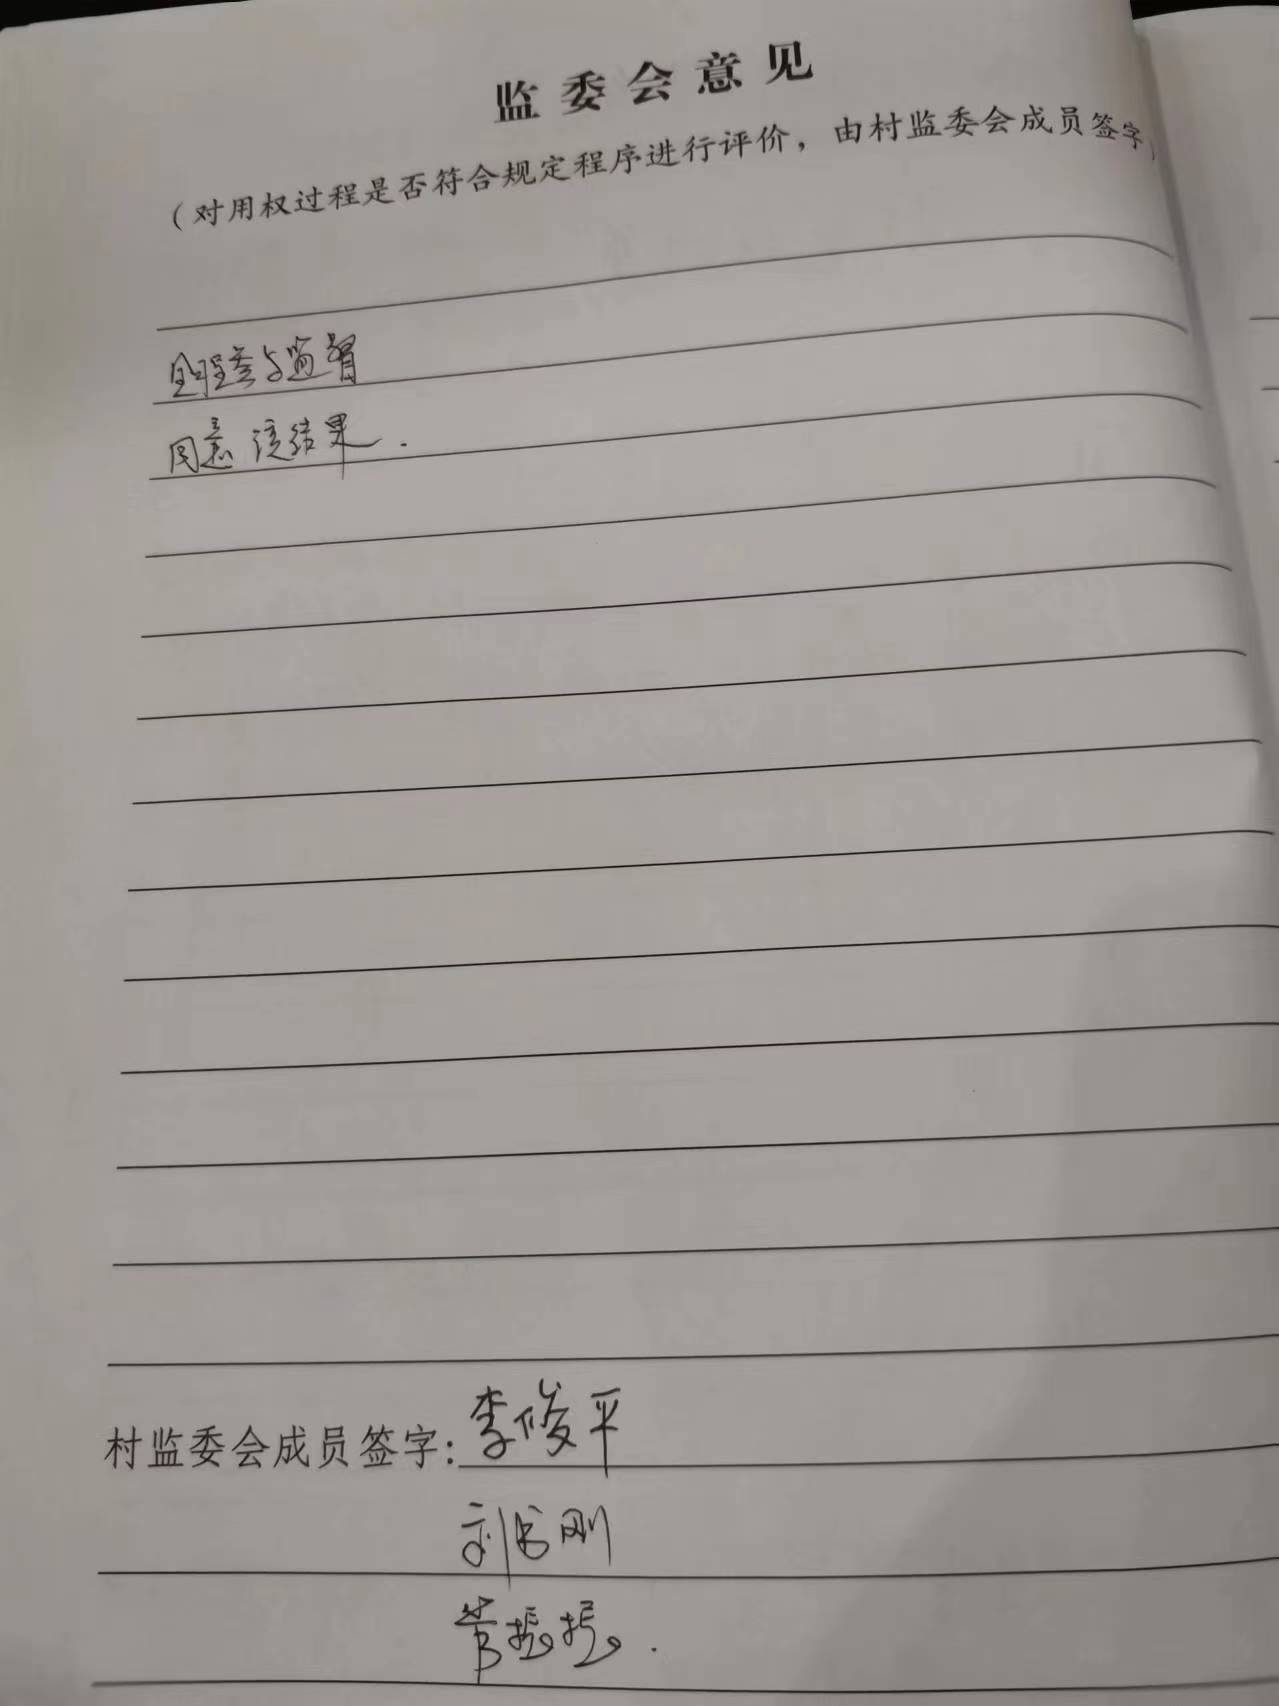 监委会意见
（对用权过程是否符合规定程序进行评价，由村监委会成员签字）
全程参与监督
同意该结果.
村监委会成员签字:李俊平
刘书刚
管振振.